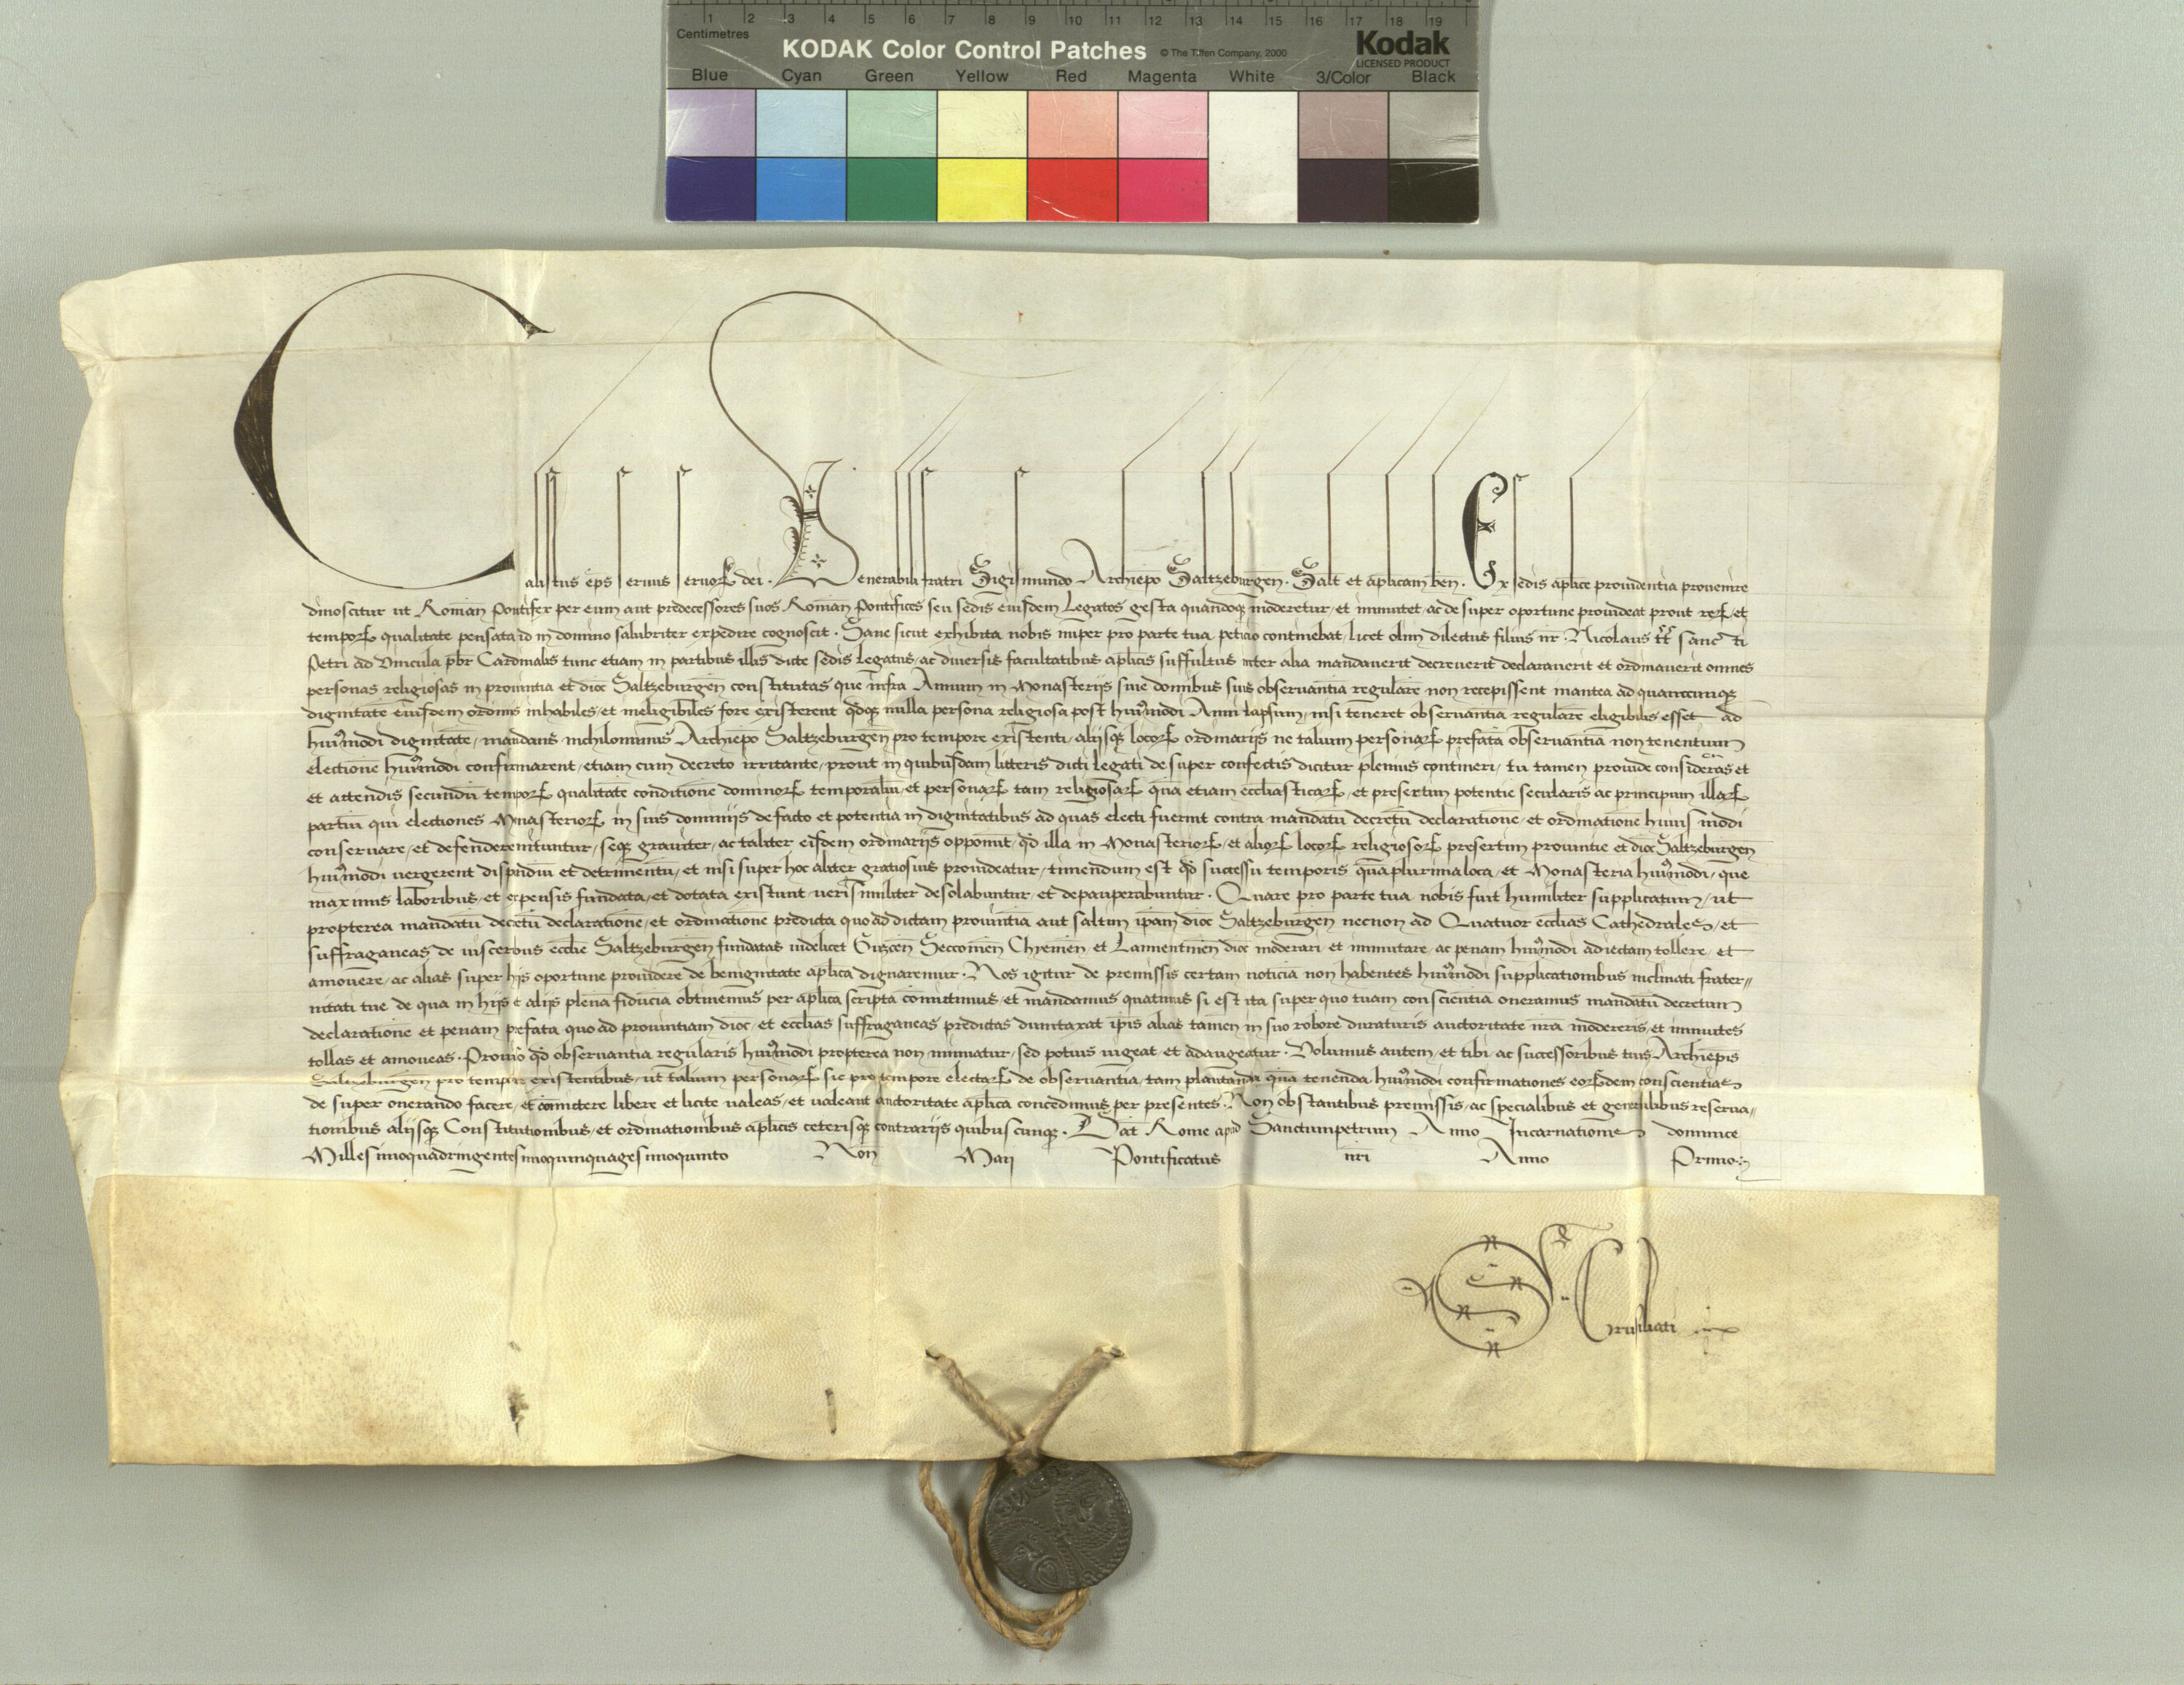 1 2 3 4 5 6 7 8 9 10 11 12 13 14 15 16 17 18 19
Centimetres
KODAK Color Control Patches © The Tiffen Company, 2000 Kodak
LICENSED PRODUCT
Blue Cyan Green Yellow Red Magenta White 3/Color Black
Calistus ep̄s servus servoꝝ dei. Venerabili fratri Sigismundo Archiep̄o Saltzeburgen̄. Salt̄ et ap̄licam ben̄. Ex sedis aplice providentia provenire
dinoscitur ut Roman̄ Pontifex per eum aut predecessores suos Roman̄ Pontifices seu sedis eiusdem Legatos gesta quandoqꝫ moderetur / et immutet / ac de super oportune provideat prout reꝝ / et
tempoꝝ qualitate pensata id in domino salubriter expedire cognoscit. Sane sicut exhibita nobis nuper pro parte tua petitio continebat / licet olim dilectus filius nr̄. Nicolaus tt̄ sanc̄ ti
Petri ad Vincula pb̄r Cardinalis tunc etiam in partibus illis dicte sedis Legatus / ac diversis facultatibus ap̄licis suffultus inter alia mandaverit decreverit declaraverit et ordinaverit omnes
personas religiosas in provintia et dioc̄ Saltzeburgen̄ constitutas que infra Annum in Monasterijs sive domibus suis observantia regularē non recepissent inantea ad quamcunqꝫ
dignitatē eiusdem ordinis inhabiles / et ineligibiles fore existerent qd̄qꝫ nulla persona religiosa post huiꝰmodi Anni lapsum / nisi teneret observantiā regularē eligibilis esset ad
huiꝰmodi dignitatē / mandans nichilominus Archiep̄o Saltzeburgen̄ pro tempore existenti / alijsqꝫ locoꝝ ordinarijs ne talium personaꝝ prefatā observantiā non tenentium
electionē huiꝰmodi confirmarent / etiam cum decreto irritante / prout in quibusdam litteris dicti legati de super confectis dicitur plenius contineri / tu tamen provide consideras et
et attendis secundū tempoꝝ qualitatē conditionē dominoꝝ temporaliū / et personaꝝ tam religiosaꝝ quā etiam eccliasticaꝝ / et presertim potentie secularis ac principum illaꝝ
partiū qui electiones Monasterioꝝ in suis dominijs de facto et potentia in dignitatibus ad quas electi fuerint contra mandatū decretū declarationē / et ordinationē huius modi
conservare / et defendere nituntur / seqꝫ graviter / ac taliter eisdem ordinarijs opponūt / qd̄ illa in Monasterioꝝ / et alioꝝ locoꝝ religiosoꝝ presertim provintie et dioc̄ Saltzeburgen̄
huiꝰmodi vergerent dispēdiū et detrimentū / et nisi super hoc aliter gratiosius provideatur / timendum est qd̄ successu temporis quāplurima loca / et Monasteria huiꝰmodi / que
maximis laboribus / et expensis fundata / et dotata existunt / verisimiliter desolabuntur / et depauperabuntur. Quare pro parte tua nobis fuit humiliter supplicatum / ut
propterea mandatū decretū declarationē / et ordinationē predicta quo ad dictam provintiā aut saltim ip̄am dioc̄ Saltzeburgen̄ necnon ad Quatuor ecclias Cathedrales / et
suffraganeas de visceribus ecclie Saltzeburgen̄ fundatas videlicet Gurcen̄ Seccovien̄ Chyemen̄ et Lauentinen̄ dioc̄ moderari et immutare / ac penam huiꝰmodi adiectam tollere / et
amovere / ac alias super his oportune providere de benignitate ap̄lica dignaremur. Nos igitur de premissis certam noticiā non habentes huiꝰmodi supplicationibus inclinati frater=
nitati tue de qua in hijs et alijs plenā fiduciā obtinemus per ap̄lica scripta cōmittimus / et mandamus quatinus si est ita super quo tuam conscientiā oneramus mandatū decretum
declarationē et penam prefata quo ad provintiam dioc̄ / et ecclias suffraganeas predictas dumtaxat ip̄is alias tamen in suo robore duraturis auctoritate nr̄a modereris / et immutes
tollas et amoveas. Proviso qd̄ observantia regularis huiꝰmodi propterea non minuatur / sed potius vigeat et adaugeatur. Volumus autem / et tibi / ac successoribus tuis Archiep̄is
Saltzeburgen̄ pro tempore existentibus / ut talium personaꝝ sic pro tempore electaꝝ de observantia / tam plantanda quā tenenda huiꝰmodi confirmationes eoꝝdem conscientias
de super onerando facere / et cōmictere libere et licite valeas / et valeant auctoritate ap̄lica concedimus per presentes. Non obstantibus premissis / ac specialibus et generalibus reserva=
tionibus alijsqꝫ Constitutionibus / et ordinationibus ap̄licis ceterisqꝫ contrarijs quibuscunqꝫ. Dat̄ Rome apud Sanctumpetrum Anno Incarnationis dominice
Millesimoquadringentesimoquinquagesimoquinto Non̄ Maij Pontificatus nr̄i Anno Primo